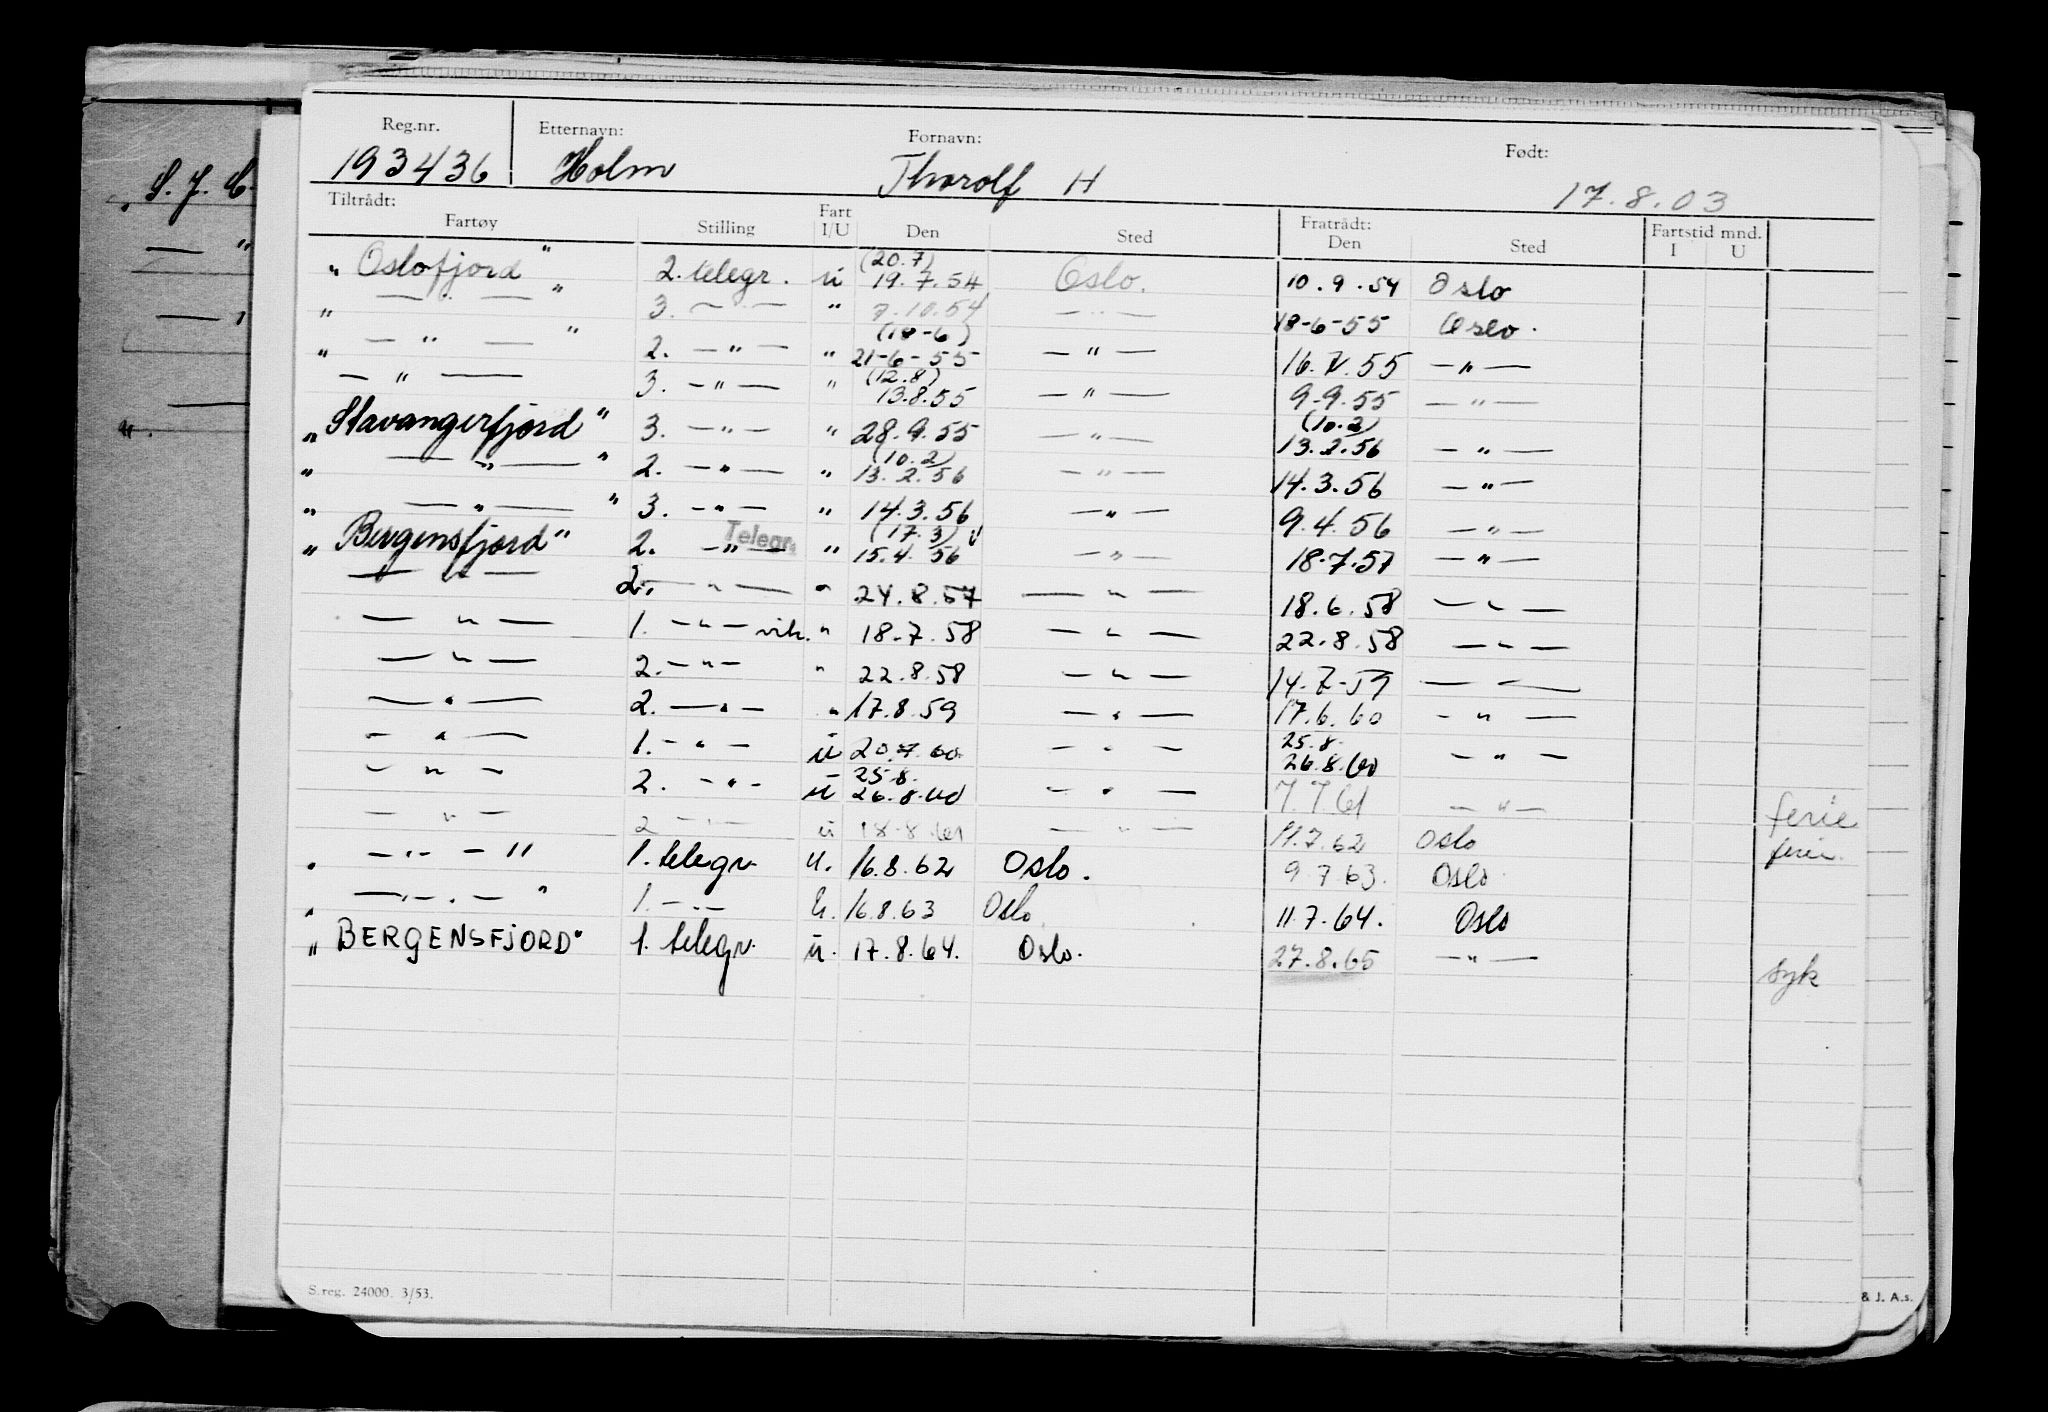 Reg.nr. Etternavn: Fornavn: Født:
193436 Holm Thorolf H 17.8.03
Tiltrådt: Fratrådt:
Fartøy Stilling Fart I/U Den Sted Den Sted Fartstid mnd. I U
(20.7)
" Oslofjord " 2. telegr. u 19.7.54 Oslo. 10.9.54 Oslo
" — " — " 3. — " — " 7.10.54 — " — 18-6-55 Oslo.
(18-6)
" — " — " 2. — " — " 21-6-55 — " — 16.7.55 — " —
(12.8)
— " — 3. — " — " 13.8.55 — " — 9-9.55 — " —
(10.2)
" Stavangerfjord " 3. — " — " 28.9.55 — " — 13.2.56 — " —
(10.2)
" — " — " 2. — " — " 13.2.56 — " — 14.3.56 — " —
" — " — " 3. — " — " 14.3.56 — " — 9.4.56 — " —
Telegr. (17.3) v
" Bergensfjord " 2. — " — " 15.4.56 — " — 18.7.57 — " —
— " — 2. — " — " 24.8.57 — " — 18.6.58 — " —
— " — 1. — " — vik. " 18.7.58 — " — 22.8.58 — " —
— " — 2. — " — " 22.8.58 — " — 14.7.59 — " —
— " — 2. — " — " 17.8.59 — " — 17.6.60 — " —
25.8.
— " — 1. — " — u 20.7.60 — " — 26.8.60 — " —
25.8.
— " — 2. — " — u 26.8.60 — " — 7.7.61 — " — ferie
— " — 2 — " — u 18.8.61 — " — 11.7.62 Oslo ferie.
" — " — " 1. telegr. u. 16.8.62 Oslo. 9.7.63. Oslo
" — " — " 1. — " — u. 16.8.63 Oslo. 11.7.64. Oslo
" BERGENSFJORD" 1. telegr. u. 17.8.64. Oslo. 27.8.65 — " — syk
S.reg. 24000. 3/53.
& J. A.s.
S. J. C.